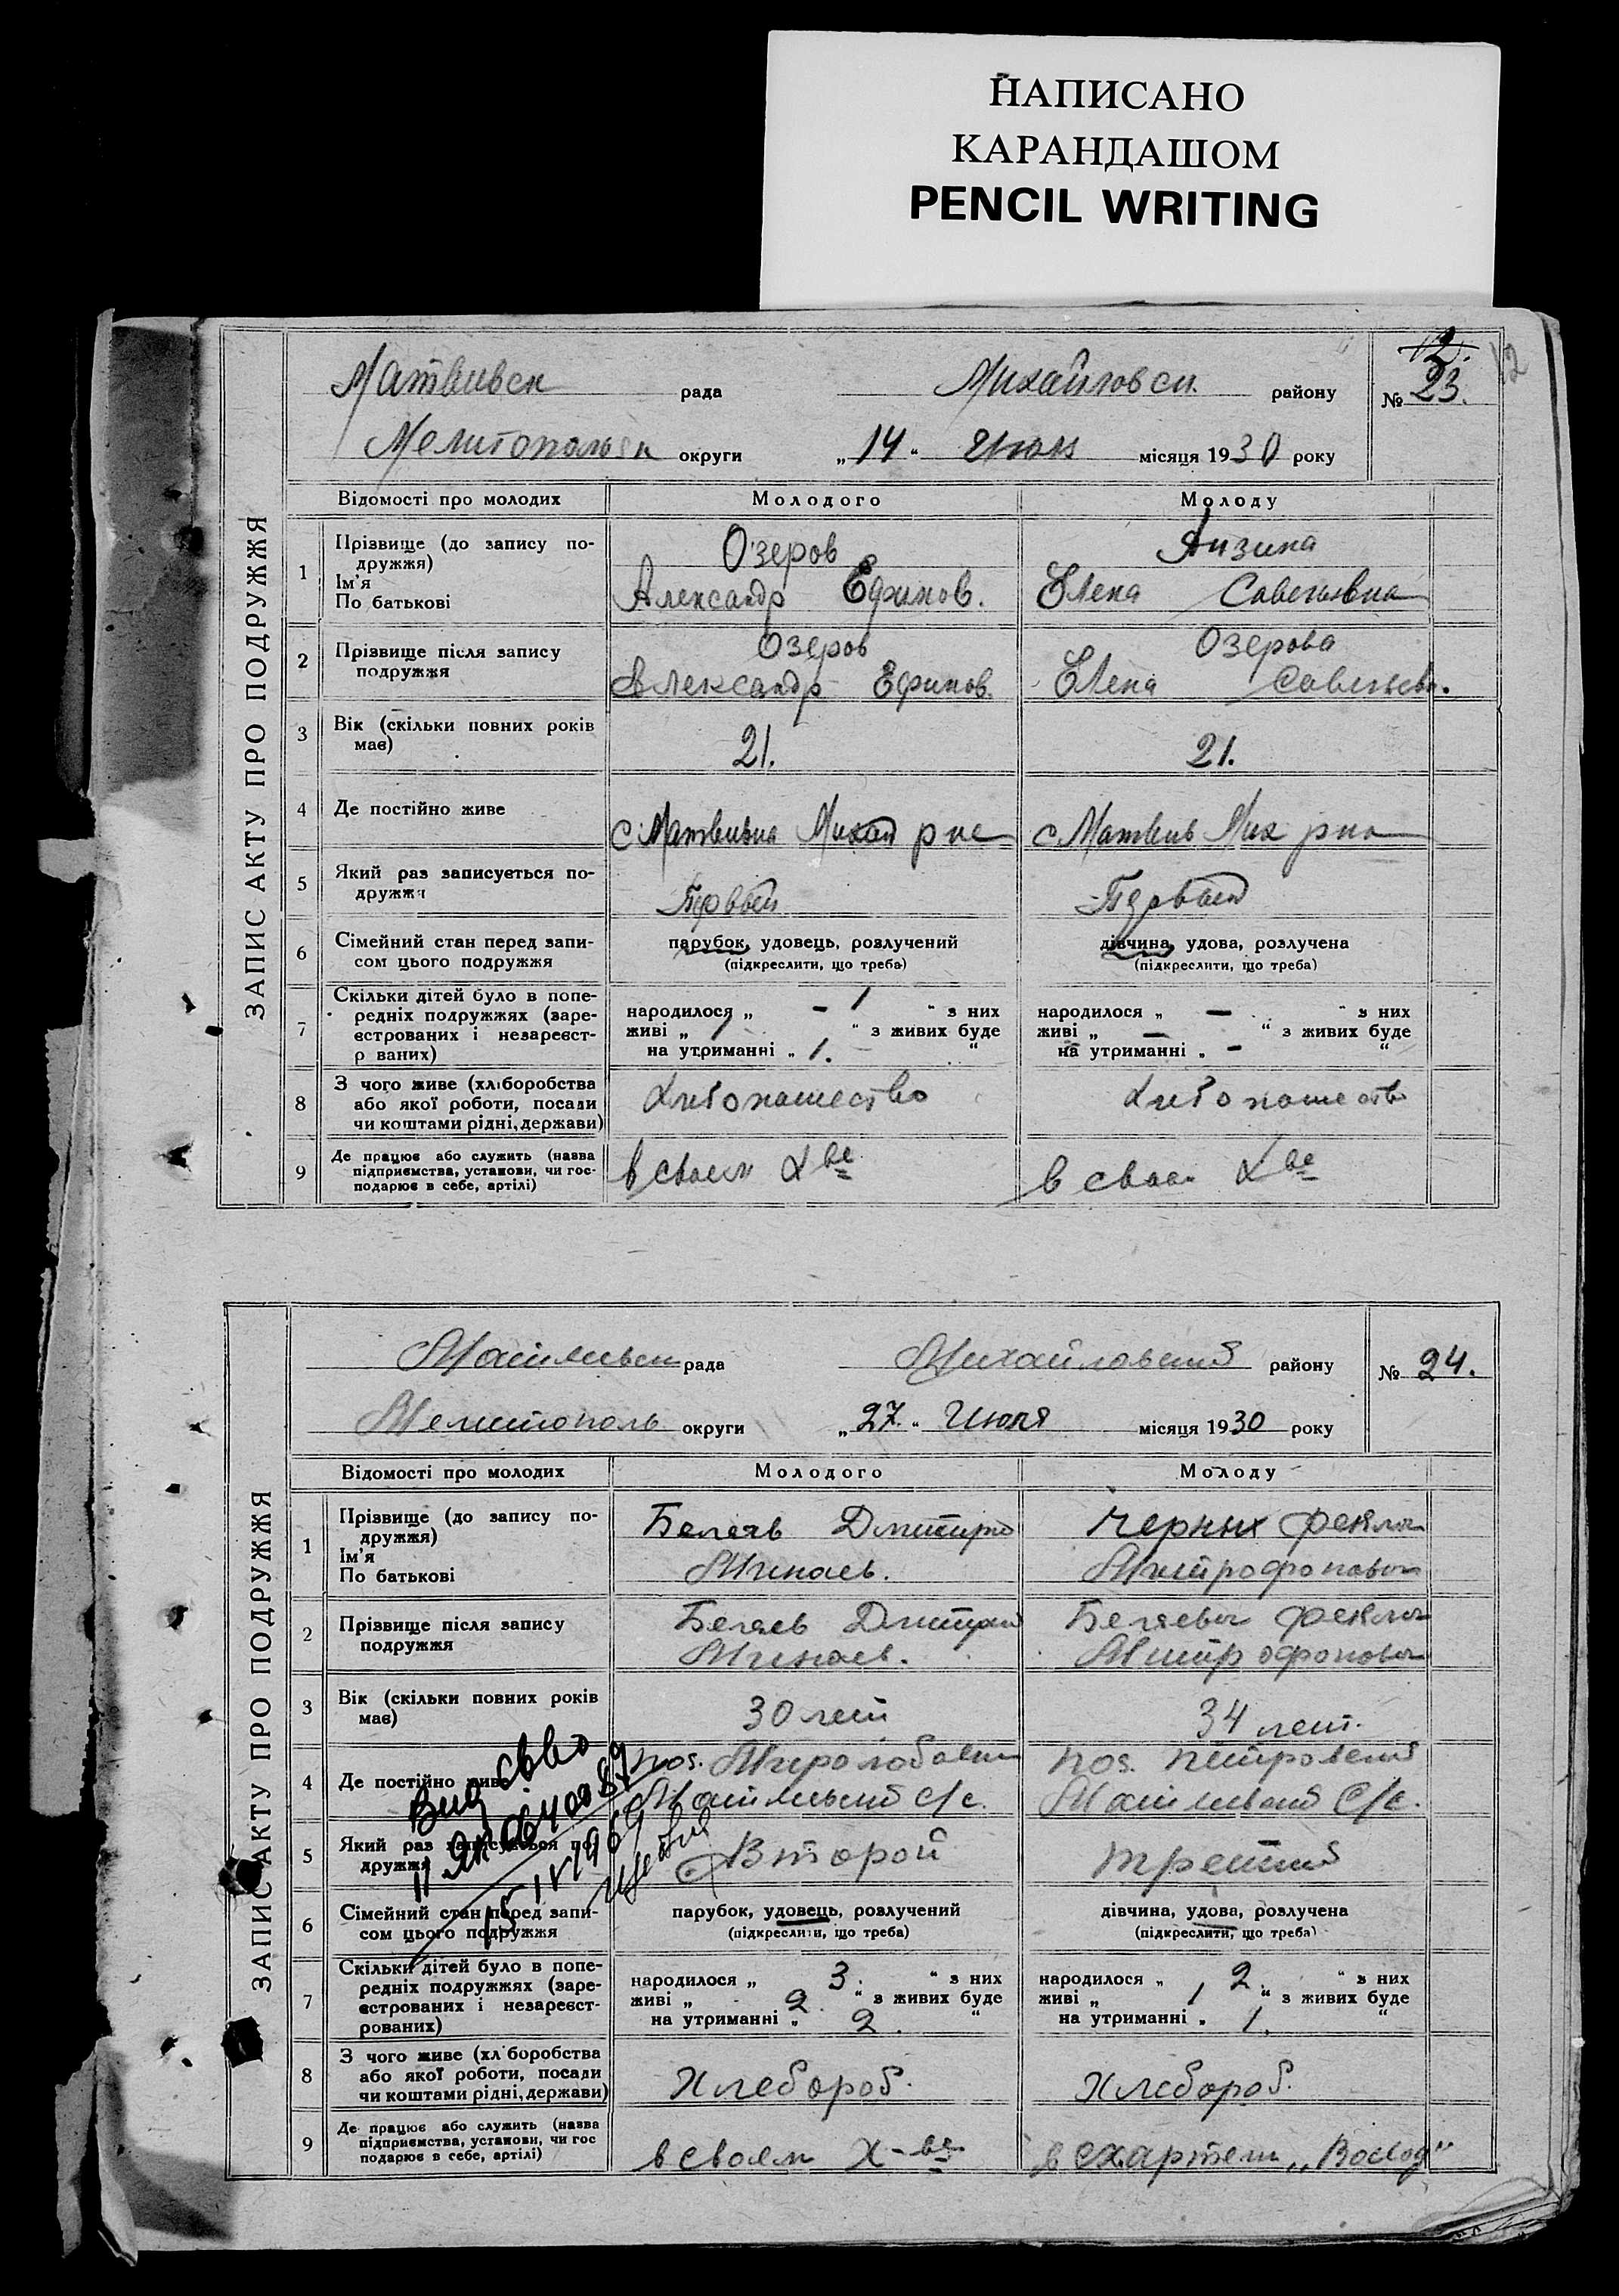 НАПИСАНО
КАРАНДАШОМ
PENCIL WRITING
12
ЗАПИС АКТУ ПРО ПОДРУЖЖЯ
Матвивск рада Михайловск. району № 23.
Мелитопольск округи „14“ Июля місяця 1930 року
Відомості про молодих Молодого Молоду
1 Прізвище (до запису по-
дружжя)
Ім'я
По батькові
Озеров
Александр Ефимов.
Анзина
Елена Савельевна
2 Прізвище після запису
подружжя
Озеров
Александр Ефимов.
Озерова
Елена Савельевн.
3 Вік (скільки повних років
має)
21. 21.
4 Де постійно живе
с Матвивка Михай рне с Матвивк Мих рна
5 Який раз записується по-
дружжя
Первый Первый
6 Сімейний стан перед запи-
сом цього подружжя
парубок, удовець, розлучений
(підкреслити, що треба)
дівчина, удова, розлучена
(підкреслити, що треба)
7 Скільки дітей було в попе-
редніх подружжях (заре-
єстрованих і незареєст-
р ваних)
народилося „ - 1 “ з них
живі „ 1 “ з живих буде
на утриманні „ 1. “
народилося „ - “ з них
живі „ - “ з живих буде
на утриманні „ - “
8 З чого живе (хліборобства
або якої роботи, посади
чи коштами рідні, держави)
Хлебопашество Хлебопашество
9 Де працює або служить (назва
підприємства, установи, чи гос-
подарює в себе, артілі)
в своем Хве в своем Хве
ЗАПИС АКТУ ПРО ПОДРУЖЖЯ
Матвивск рада Михайловский району № 24.
Мелитополь округи „27“ Июля місяця 1930 року
Відомості про молодих Молодого Молоду
1 Прізвище (до запису по-
дружжя)
Ім'я
По батькові
Беляев Дмитрий
Минаев.
Черных Фекла
Митрофановна
2 Прізвище після запису
подружжя
Беляев Дмитрий
Минаев.
Беляева Фекла
Митрофановна
3 Вік (скільки повних років
має)
30 лет 34 лет.
4 Де постійно живе
пос. Матвивский с/с.
пос. Петровский
Матвивский С/с.
Выд св-во
5 Який раз записується по-
дружжя
Второй Третий
6 Сімейний стан перед запи-
сом цього подружжя
парубок, удовець, розлучений
(підкреслити, що треба)
дівчина, удова, розлучена
(підкреслити, що треба)
7 Скільки дітей було в попе-
редніх подружжях (заре-
єстрованих і незареєст-
рованих)
народилося „ 3. “ з них
живі „ 2. “ з живих буде
на утриманні „ 2. “
народилося „ 2. “ з них
живі „ 1 “ з живих буде
на утриманні „ 1. “
8 З чого живе (хл боробства
або якої роботи, посади
чи коштами рідні, держави)
Хлебороб. Хлебороб.
9 Де працює або служить (назва
підприємства, установи, чи гос
подарює в себе, артілі)
в своем Х-ве в сх.артели „Восход“